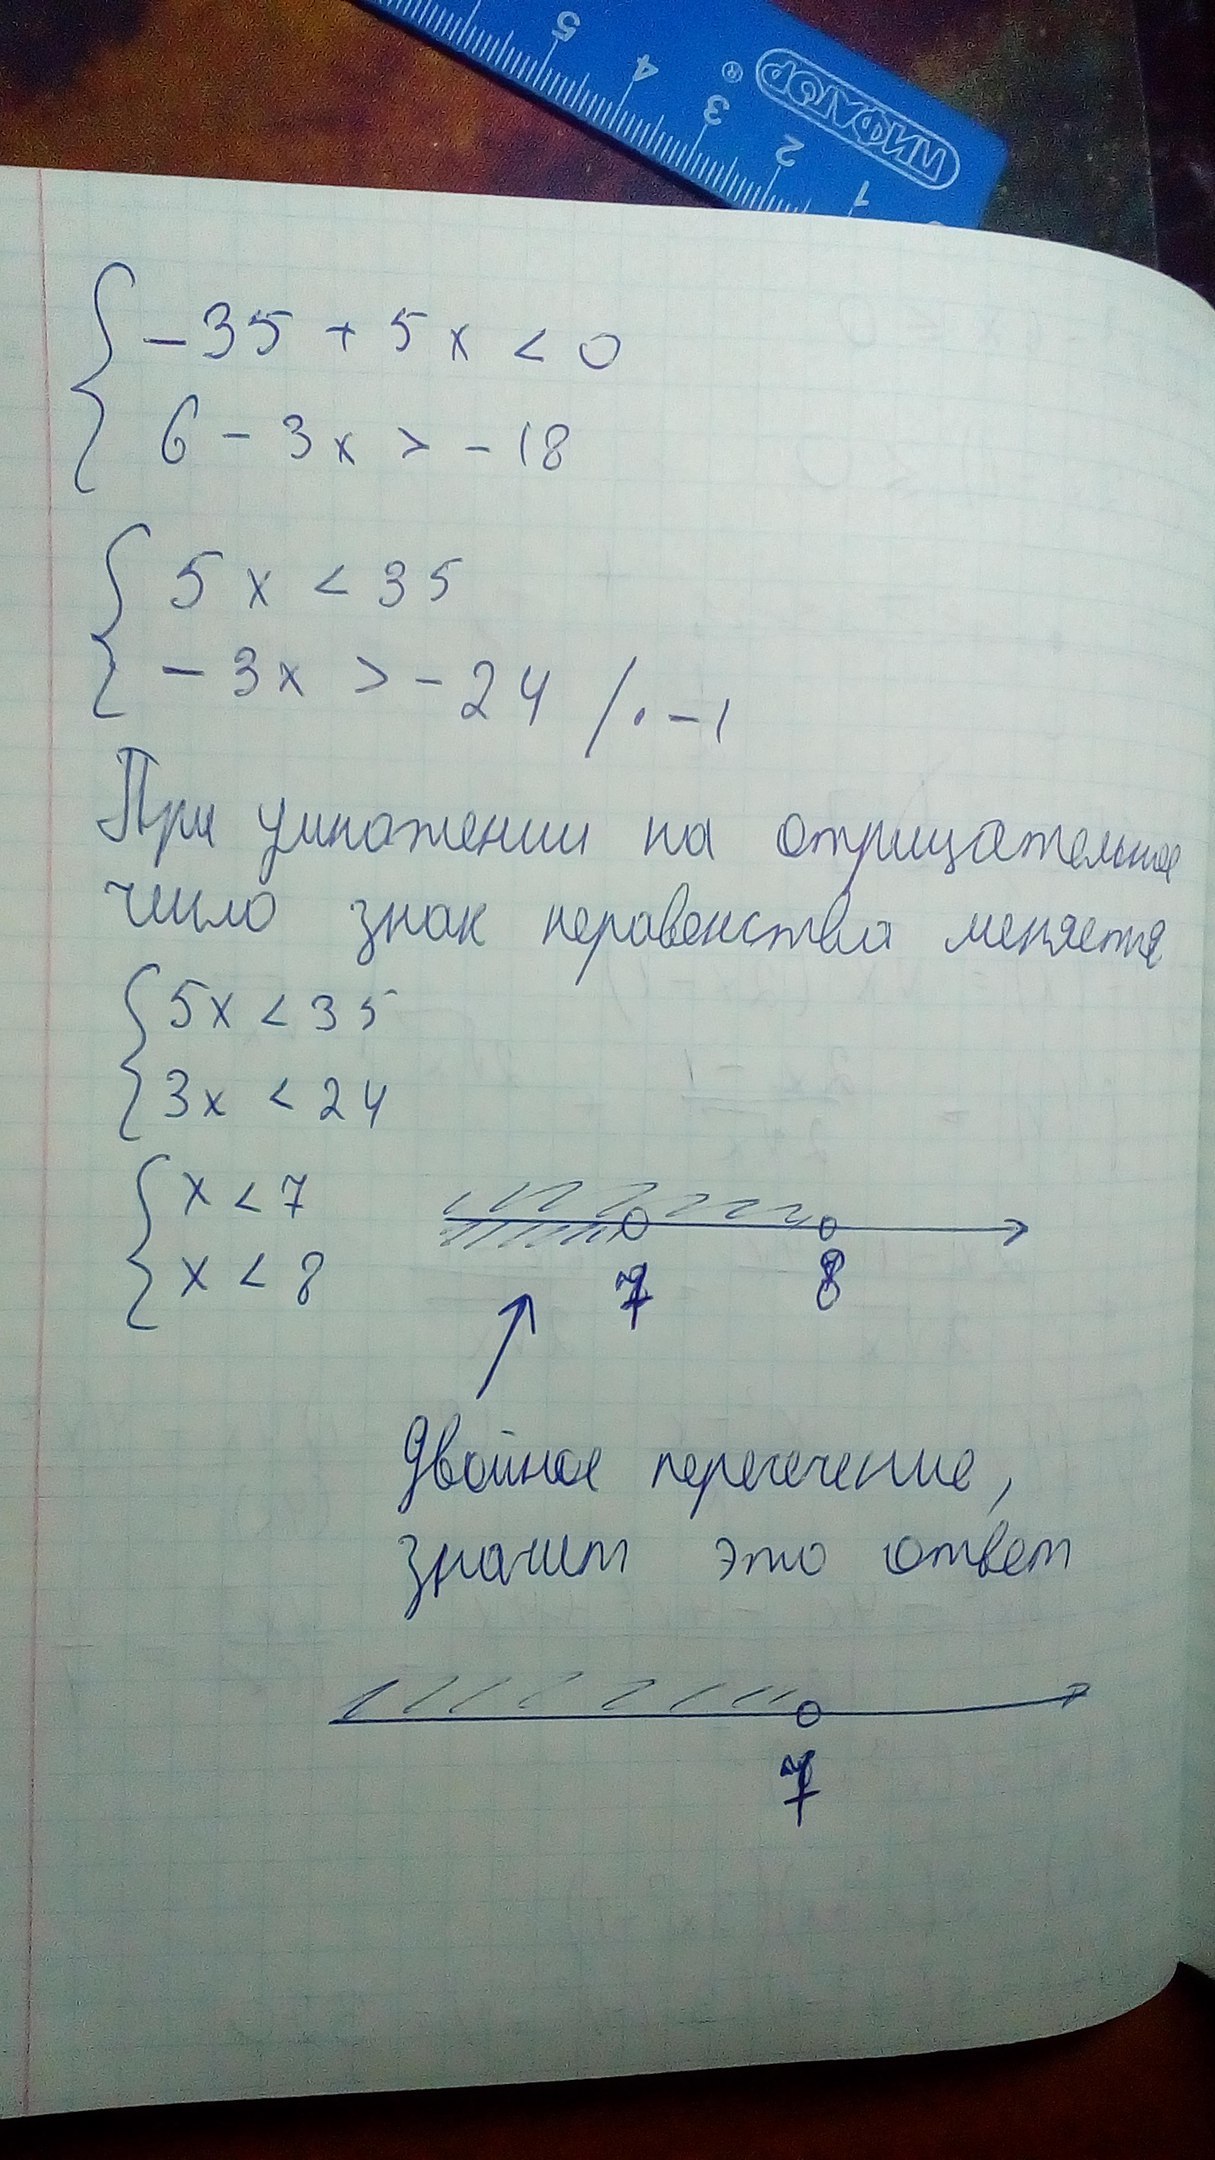 5 4 3 2 1
ПИФАГОР ®
-35 + 5x < 0
6 - 3x > -18
5x < 35
-3x > -24 / · -1
При умножении на отрицательное
число знак неравенства меняется
5x < 35
3x < 24
x < 7
x < 8
7 8
Двойное пересечение,
значит это ответ
7